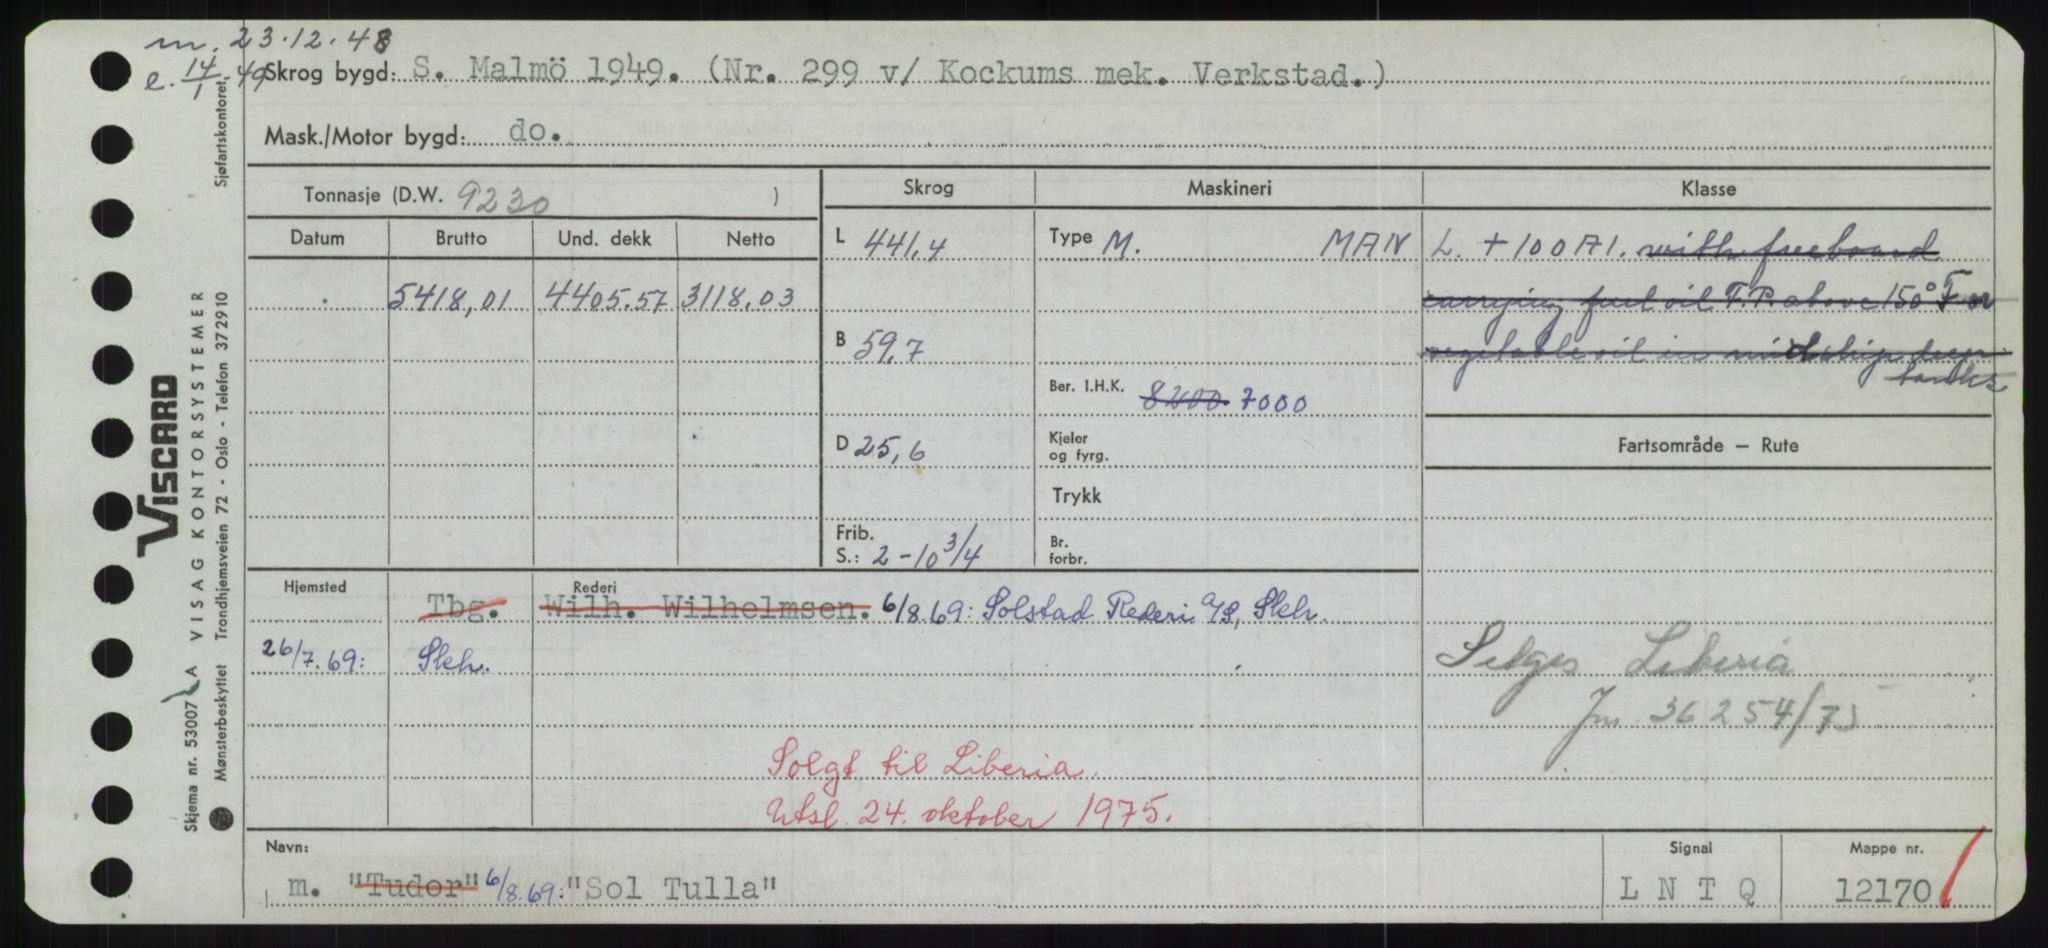 m. 23.12.48
e. 14/1-49
Skrog bygd: S. Malmö 1949. (Nr. 299 v/ Kockums mek. Verkstad.)
Mask./Motor bygd: do.
Tonnasje (D.W. 9230 )
Datum Brutto Und. dekk Netto
5418,01 4405.57 3118.03
Skrog
L 441,4
B 59,7
D 25,6
Frib.
S.: 2-10 3/4
Maskineri
Type M. MAN
Ber. I.H.K. 8200. 7000
Kjeler
og fyrg.
Trykk
Br.
forbr.
Klasse
L. + 100 A1. with freeboard
carrying fuel oil F.P. above 150° F or
vegetable oil in midship deep
tanks
Fartsområde — Rute
Selges Liberia
Jnr. 36254/75
Hjemsted Rederi
Tbg. Wilh. Wilhelmsen. 6/8.69: Solstad Rederi A/S, Skh.
26/7.69: Skh.
Solgt til Liberia.
Utsl. 24. oktober 1975.
Navn:
m. "Tudor" 6/8.69: "Sol Tulla"
Signal
L N T Q
Mappe nr.
12170
VISCARD
VISAG KONTORSYSTEMER
Skjema nr. 53007 A
Sjøfartskontoret.
Mønsterbeskyttet Trondhjemsveien 72 - Oslo - Telefon 372910